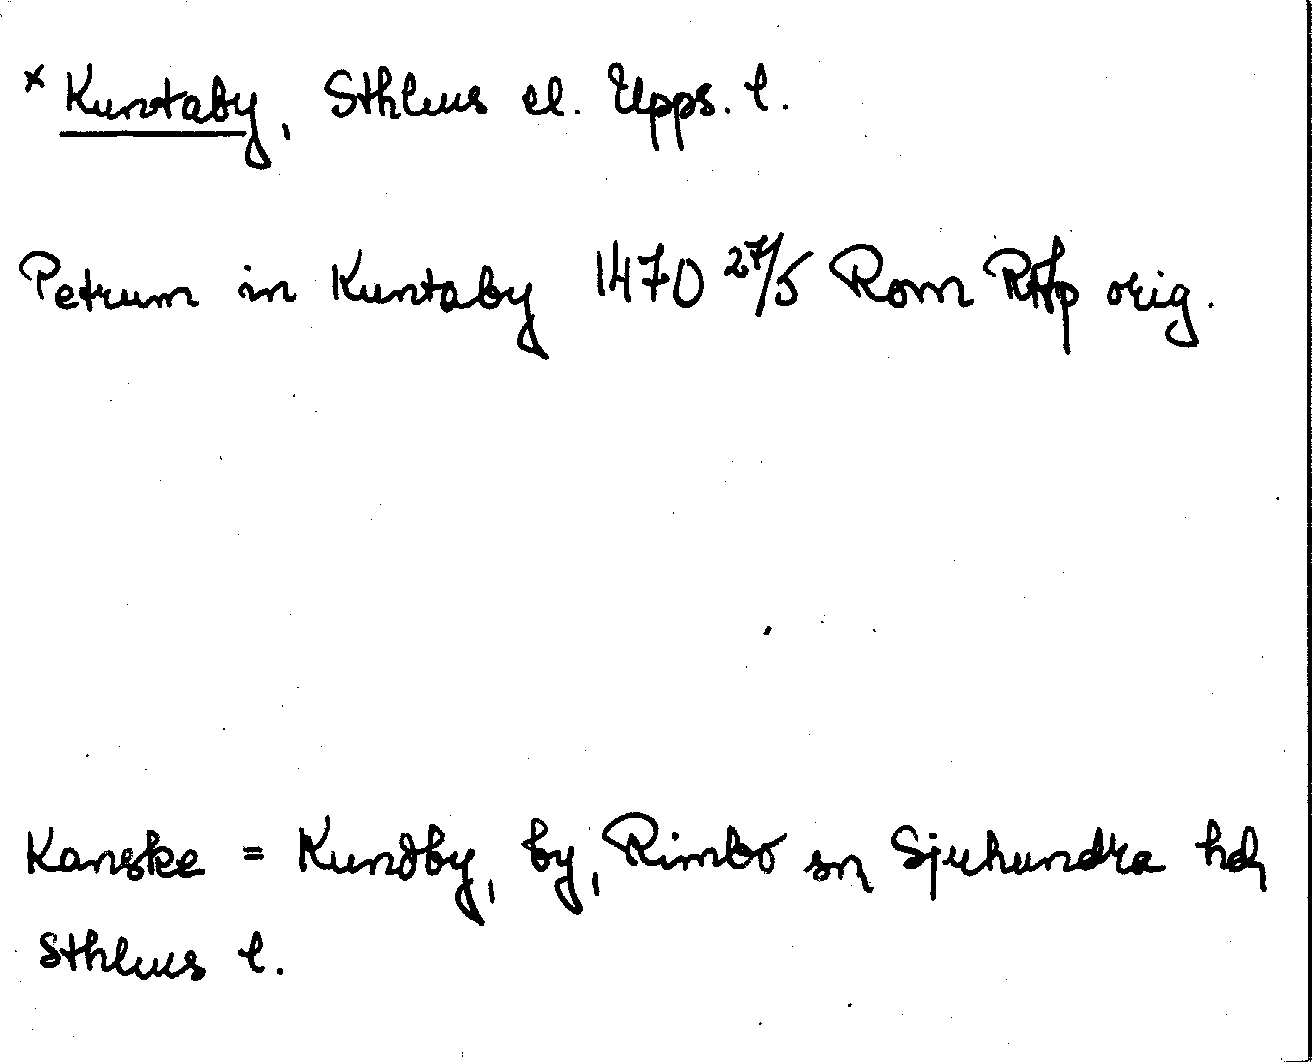 × Kuntaby, Sthlms el. Upps. l.
Petrum in Kuntaby 1470 27/5 Rom RAp orig.
Kanske = Kundby, by, Rimbo sn Sjuhundra hd,
Sthlms l.